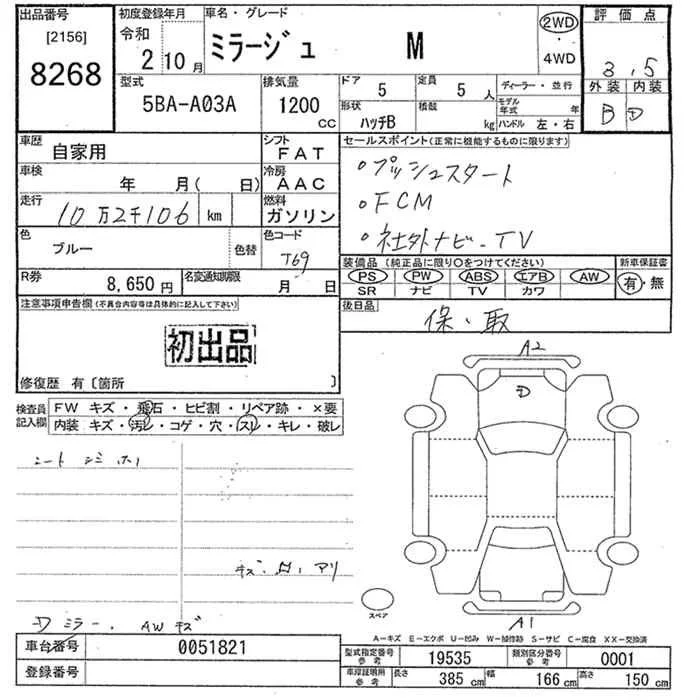 出品番号
[2156]
8268
初度登録年月
令和
2 10月
車名・グレード
ミラージュ M
2WD
・
4WD
評価点
3.5
外装 内装
B D
型式
5BA-A03A
排気量
1200
cc
ドア
5
定員
5 人
形状
ハッチB
積載
kg
ディーラー・並行
モデル年式 年
ハンドル 左・右
車歴
自家用
シフト
FAT
車検
年 月( 日)
冷房
AAC
走行
10万2千106 km
燃料
ガソリン
色
ブルー
色替
色コード
T69
R券
8,650円
名変通知期限
月 日
セールスポイント(正常に機能するものに限ります)
・プッシュスタート
・FCM
・社外ナビ-TV
装備品(純正品に限り○をつけてください)
PS・PW・ABS・エアB・AW・
SR ナビ TV カワ
新車保証書
有・無
後日品
保・取
注意事項申告欄(不具合内容等は具体的に記入して下さい)
初出品
修復歴 有〔箇所 〕
検査員
記入欄
FW キズ・飛石・ヒビ割・リペア跡・×要
内装 キズ・汚レ・コゲ・穴・スレ・キレ・破レ
シート シミ
キズ・凹・アリ
ミラー、AWキズ
A2
A1
スペア
A−キズ E−エクボ U−凹み W−補修跡 S−サビ C−腐食 XX−交換済
車台番号
0051821
登録番号
型式指定番号
参考
19535
類別区分番号
参考
0001
車庫証明用
参考
長さ
385 cm
幅
166 cm
高さ
150 cm